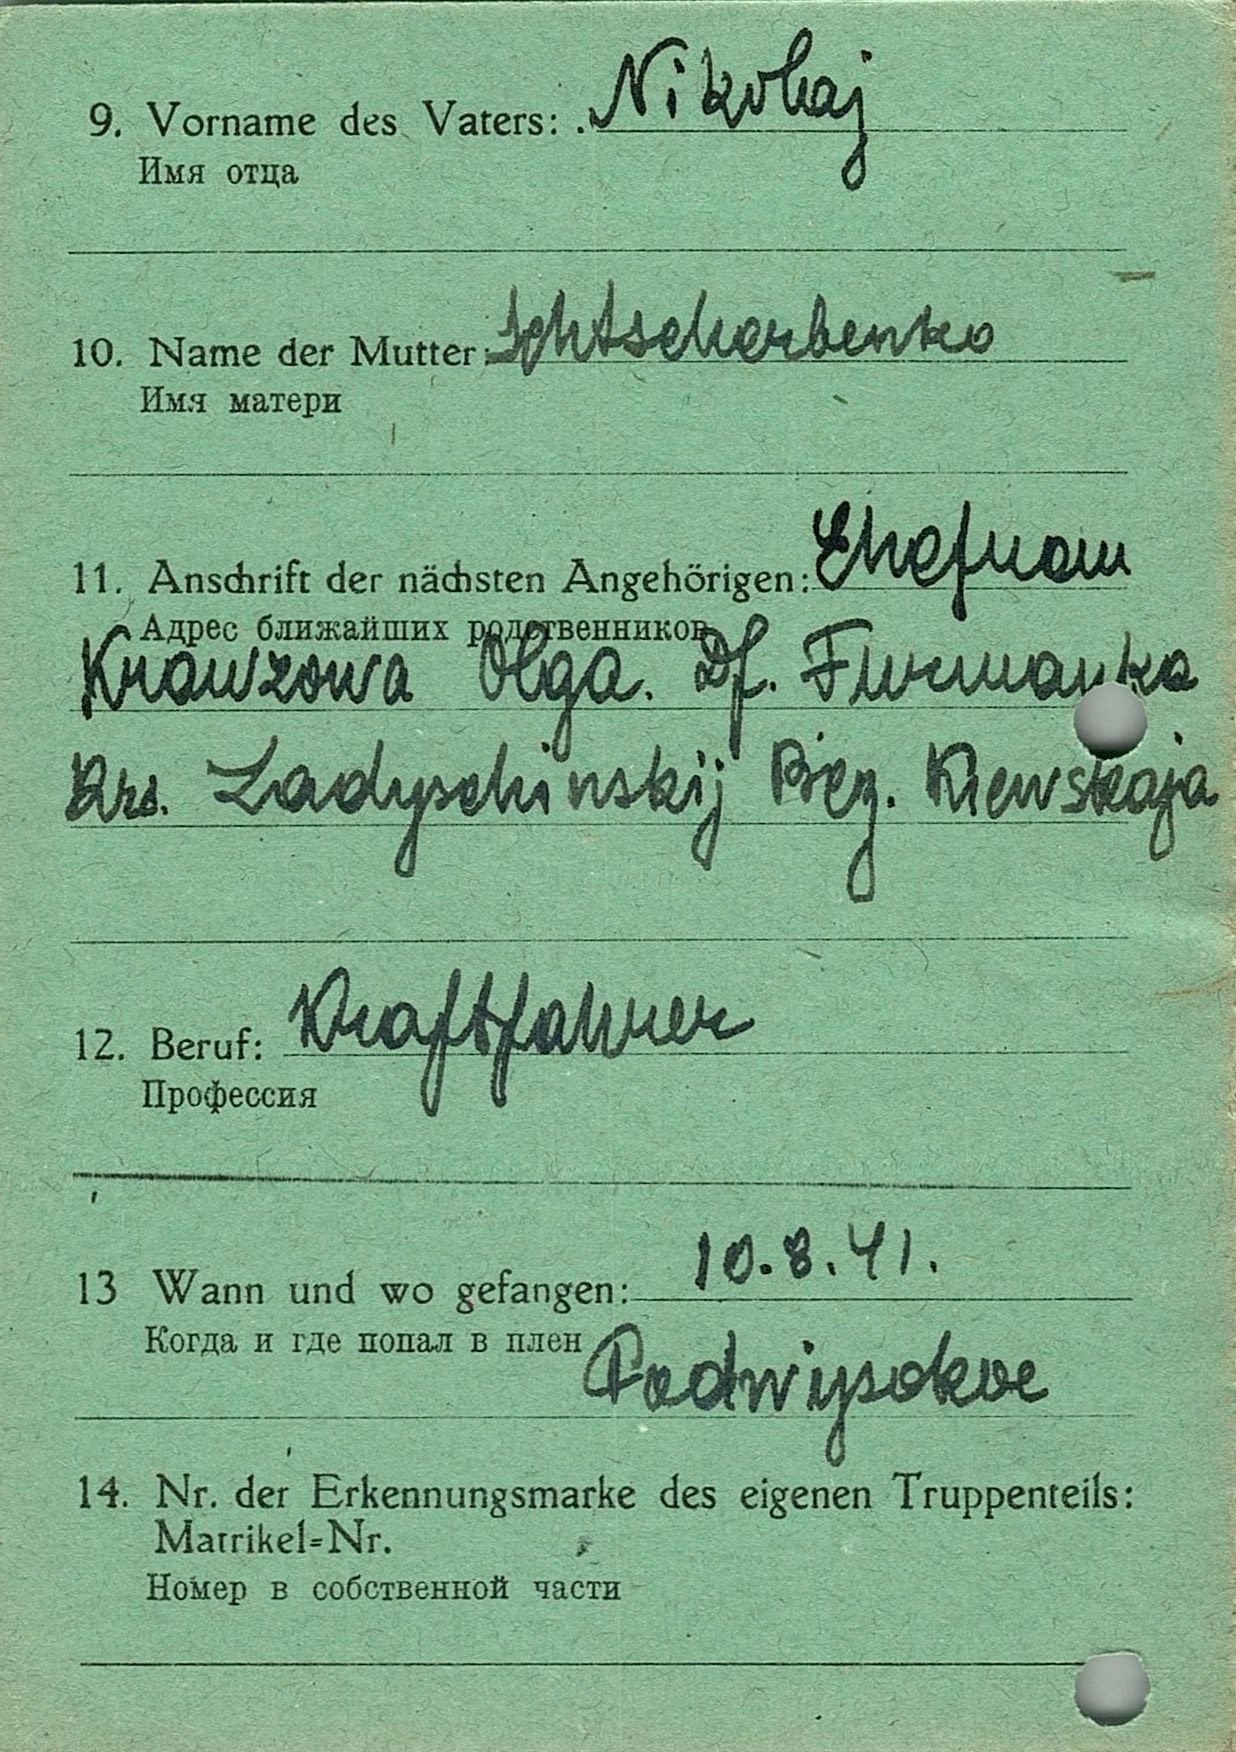 9. Vorname des Vaters: Nikolaj
Имя отца
10. Name der Mutter: Schtscherbenko
Имя матери
11. Anschrift der nächsten Angehörigen: Ehefrau
Адрес ближайших родственников
Krawzowa Olga. Df. Furmanka
Krs. Ladyschinskij Bez. Kiewskaja
12. Beruf: Kraftfahrer
Профессия
13 Wann und wo gefangen: 10.8.41.
Когда и где попал в плен
Podwysokoe
14. Nr. der Erkennungsmarke des eigenen Truppenteils:
Matrikel=Nr.
Номер в собственной части